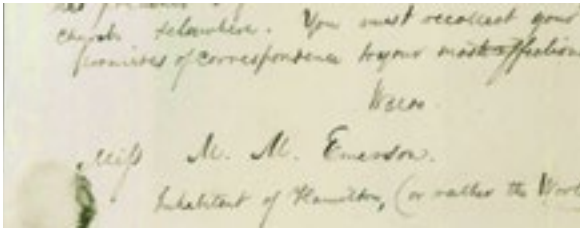 church elsewhere. You must recollect your
promises of correspondence to your most affection
Waldo.
Miss M. M. Emerson.
Inhabitant of Hamilton, (or rather the Worl